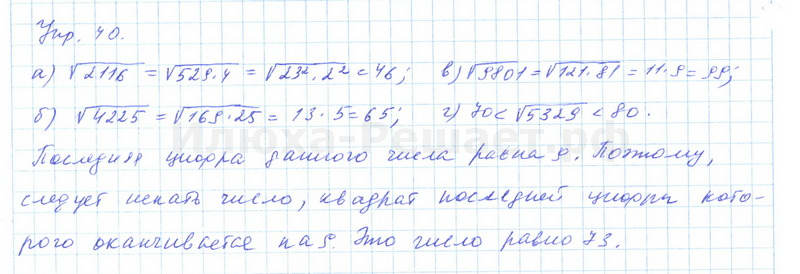 Упр. 40.
а) √2116 = √529·4 = √23²·2² = 46; в) √9801 = √121·81 = 11·9 = 99;
б) √4225 = √169·25 = 13·5 = 65; г) 70 < √5329 < 80.
Последняя цифра данного числа равна 9. Поэтому,
следует искать число, квадрат последней цифры кото-
рого оканчивается на 9. Это число равно 73.
Илюха-Решает.рф